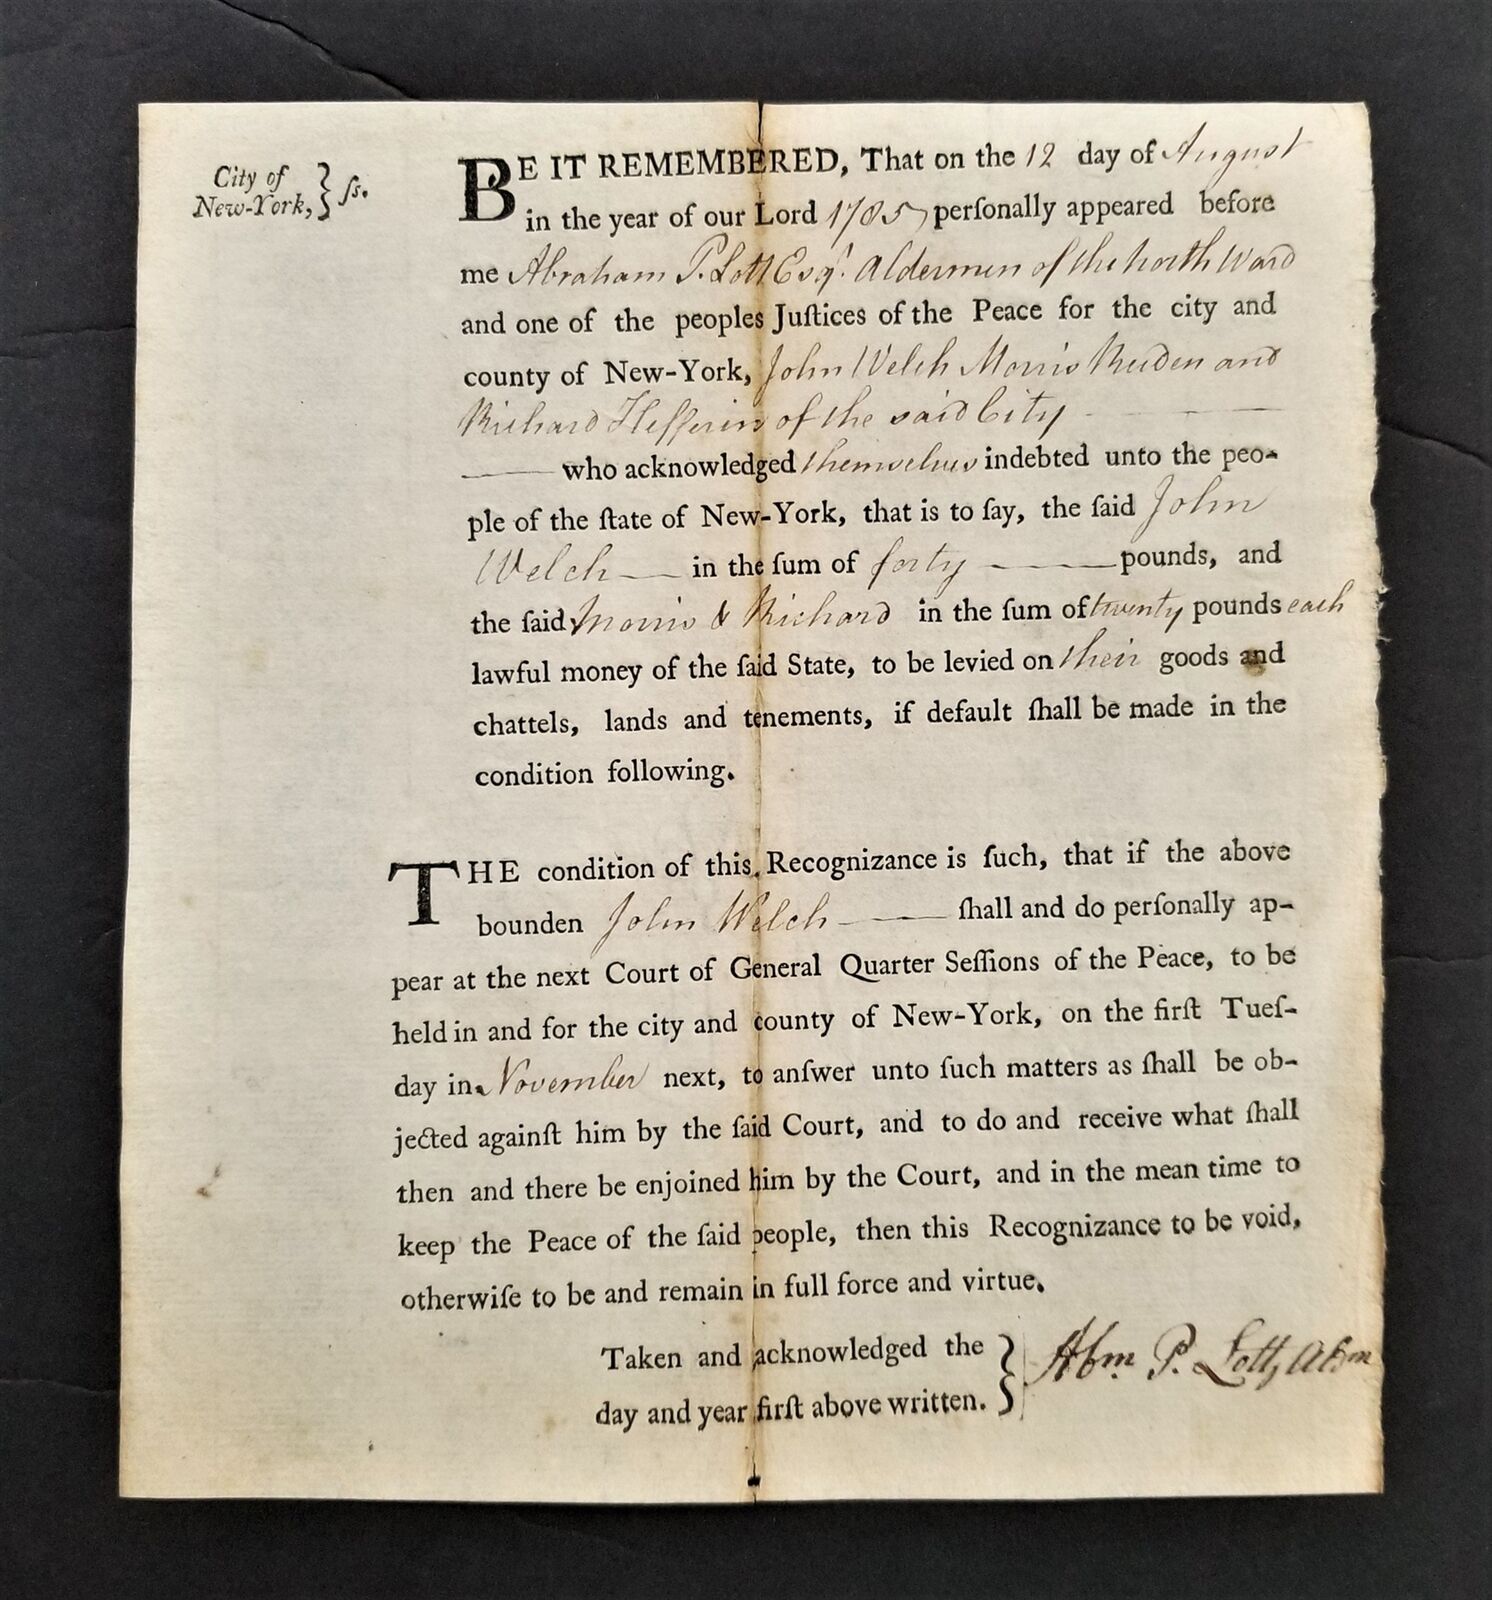 City of
New-York, } ſs.
BE IT REMEMBERED, That on the 12 day of August
in the year of our Lord 1785 perſonally appeared before
me Abraham P. Lott Esqr. Aldermen of the North Ward
and one of the peoples Juſtices of the Peace for the city and
county of New-York, John Welch Morris and
Richard Hefferin of the said City
who acknowledged themselves indebted unto the peo-
ple of the ſtate of New-York, that is to ſay, the ſaid John
Welch — in the ſum of forty — pounds, and
the ſaid Morris & Richard in the ſum of twenty pounds each
lawful money of the ſaid State, to be levied on their goods and
chattels, lands and tenements, if default ſhall be made in the
condition following.
THE condition of this Recognizance is ſuch, that if the above
bounden John Welch — ſhall and do perſonally ap-
pear at the next Court of General Quarter Seſſions of the Peace, to be
held in and for the city and county of New-York, on the firſt Tueſ-
day in November next, to anſwer unto ſuch matters as ſhall be ob-
jected againſt him by the ſaid Court, and to do and receive what ſhall
then and there be enjoined him by the Court, and in the mean time to
keep the Peace of the ſaid people, then this Recognizance to be void,
otherwiſe to be and remain in full force and virtue.
Taken and acknowledged the
day and year firſt above written. } Abm. P. Lott, Aldm